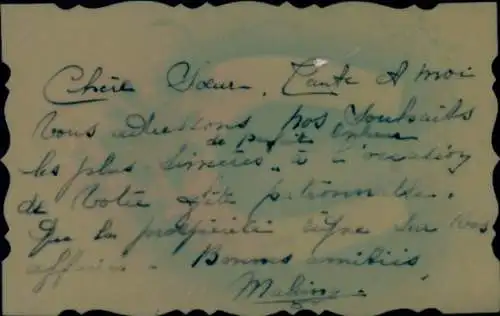 Chère Sœur. Tante & moi
vous adressons nos souhaits
de parfait bonheur
les plus sincères à l'occasion
de votre fête patronale.
Que la prospérité règne sur vos
affaires. Bonnes amitiés